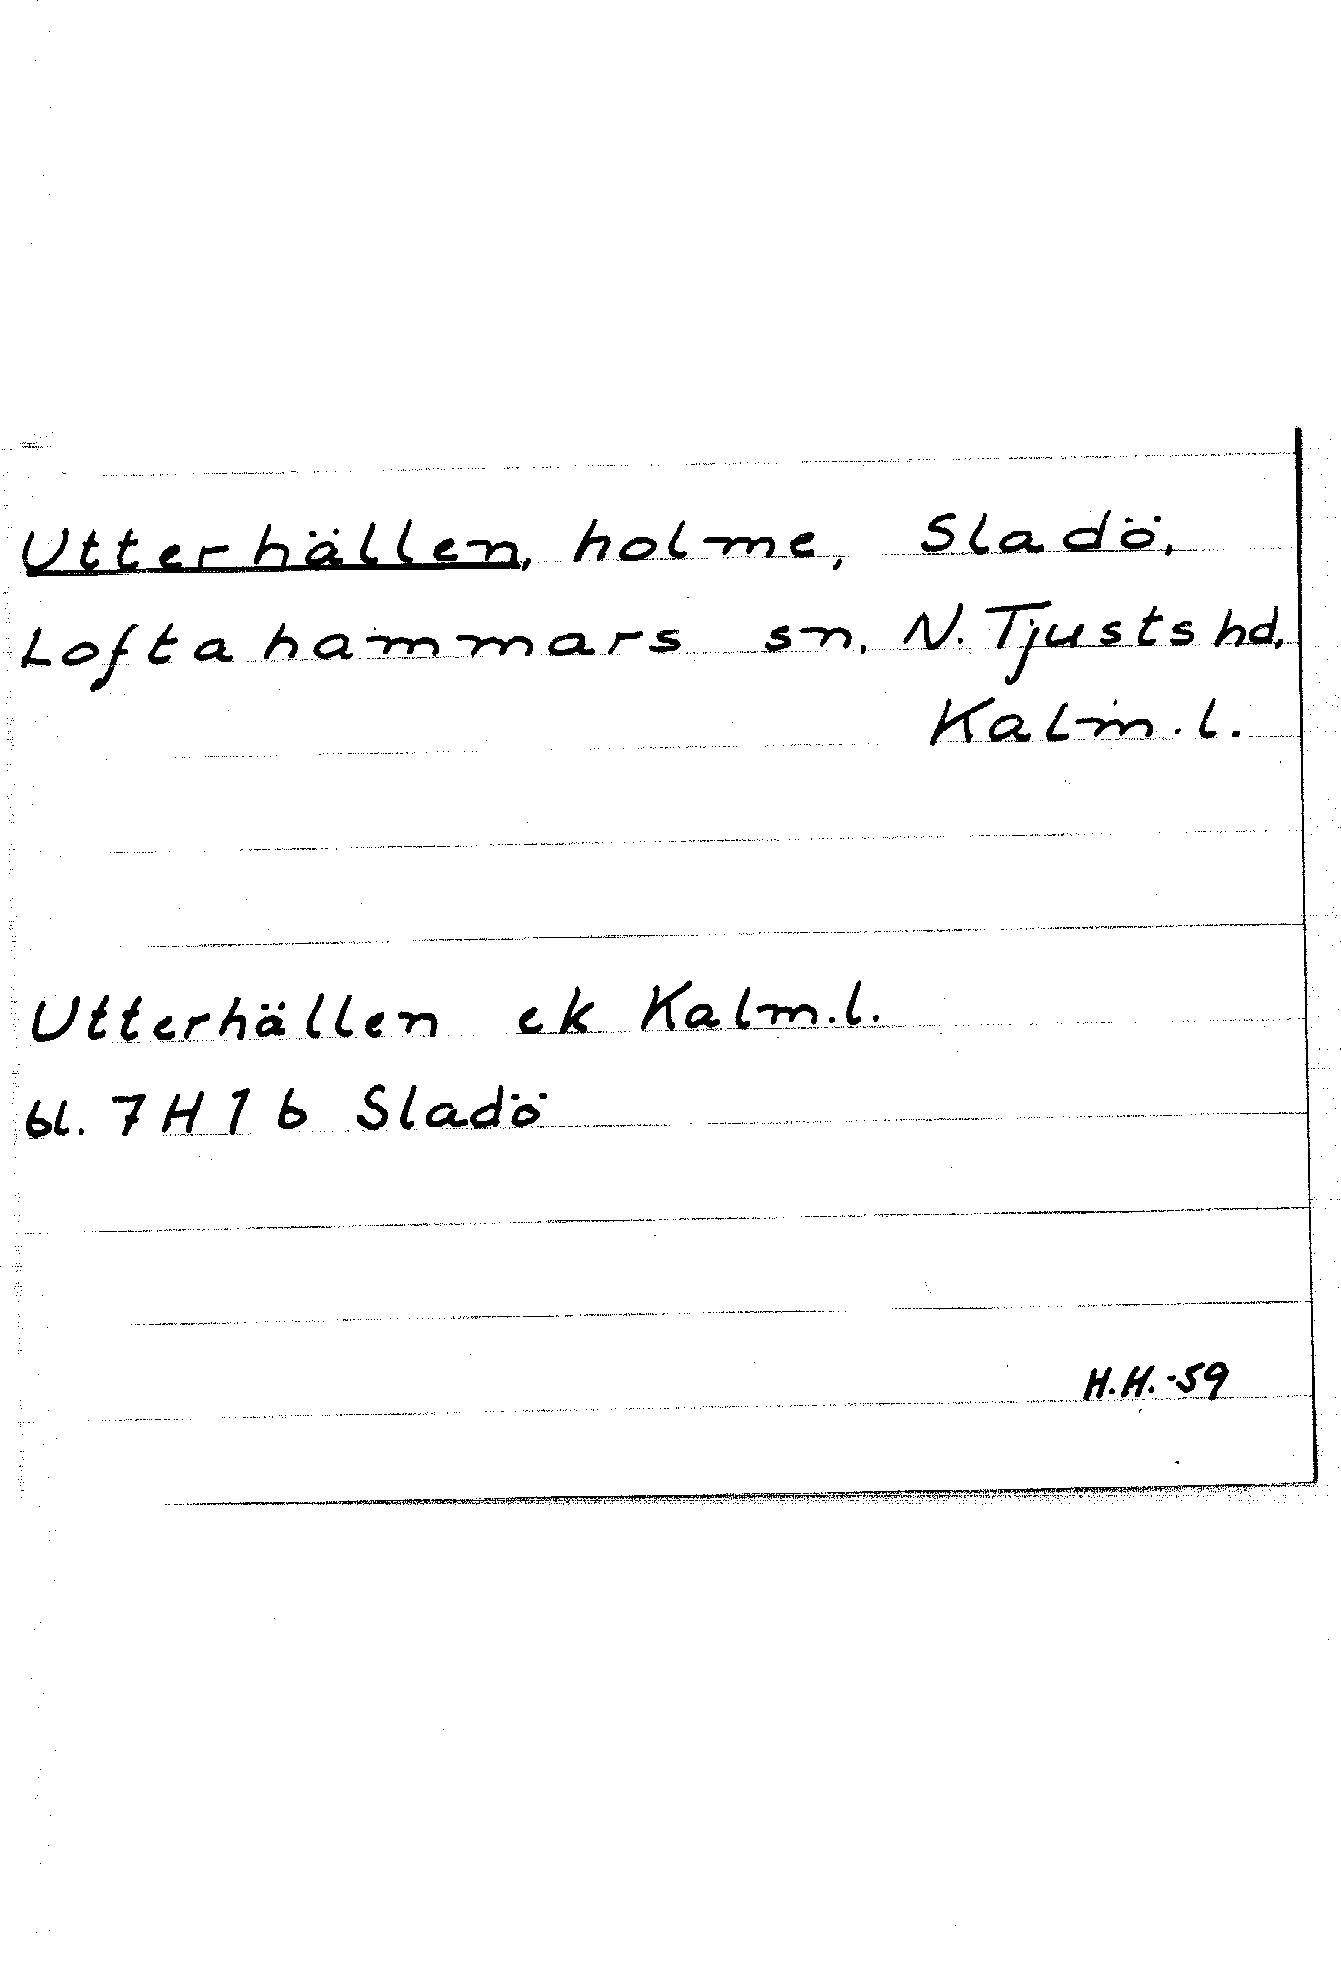 Utterhällen, holme, Sladö,
Loftahammars sn, N. Tjusts hd,
Kalm.l.
Utterhällen ek Kalm.l.
bl. 7 H 1 b Sladö
H.H.-59